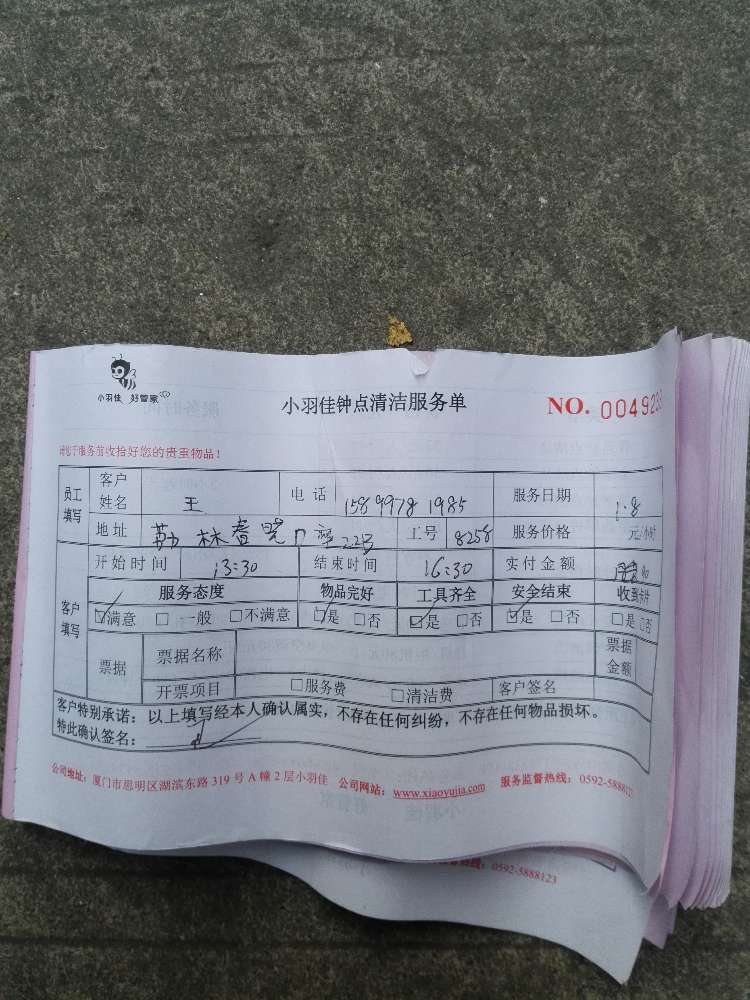 小羽佳 好管家
小羽佳钟点清洁服务单
NO. 004923
请于服务前收拾好您的贵重物品！
员工填写 客户姓名 王 电话 158 9978 1985 服务日期 1.8
地址 勤林春晓 22号 工号 8258 服务价格 元/小时
开始时间 13:30 结束时间 16:30 实付金额
客户填写 服务态度 物品完好 工具齐全 安全结束 收到卡片
☑满意 □一般 □不满意 ☑是 □否 ☑是 □否 ☑是 □否 □是 □否
票据 票据名称 票据金额
开票项目 □服务费 □清洁费 客户签名
客户特别承诺：以上填写经本人确认属实，不存在任何纠纷，不存在任何物品损坏。
特此确认签名：
公司地址：厦门市思明区湖滨东路 319 号 A 幢 2 层小羽佳 公司网站：www.xiaoyujia.com 服务监督热线：0592-5888123
热线：0592-5888123